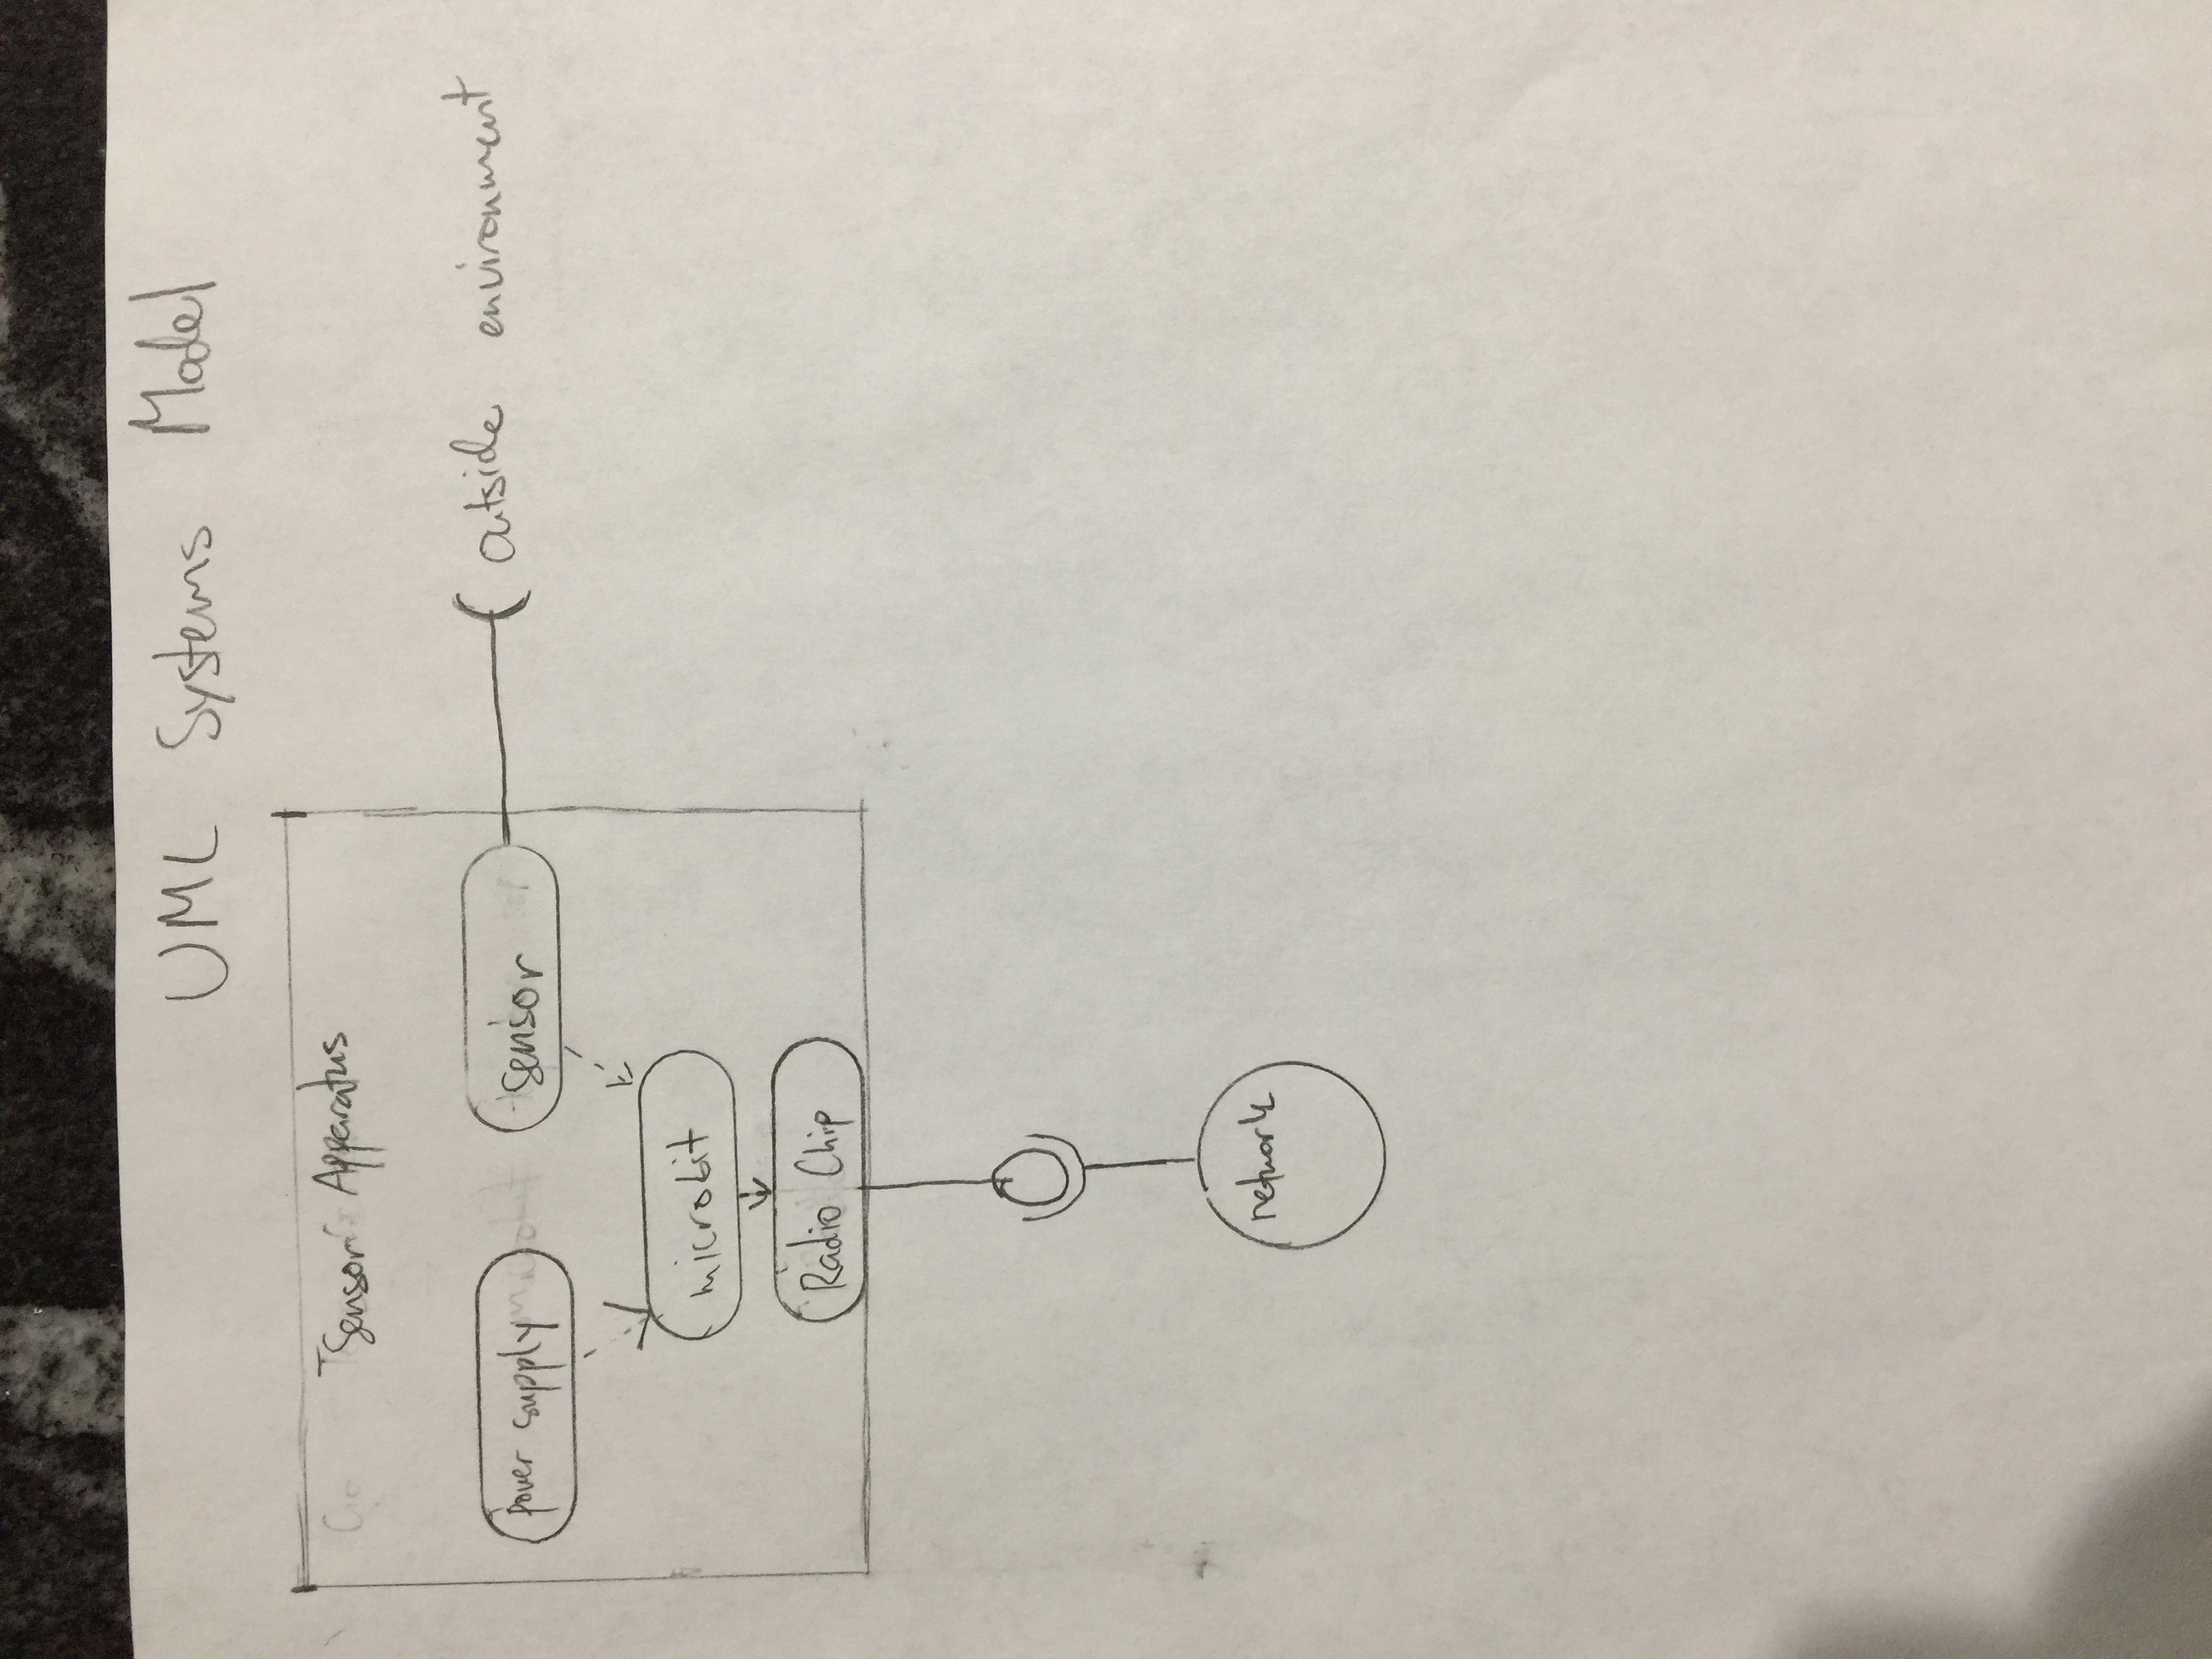 UML Systems Model
Sensor Apparatus
power supply
sensor
outside environment
microbit
Radio Chip
network